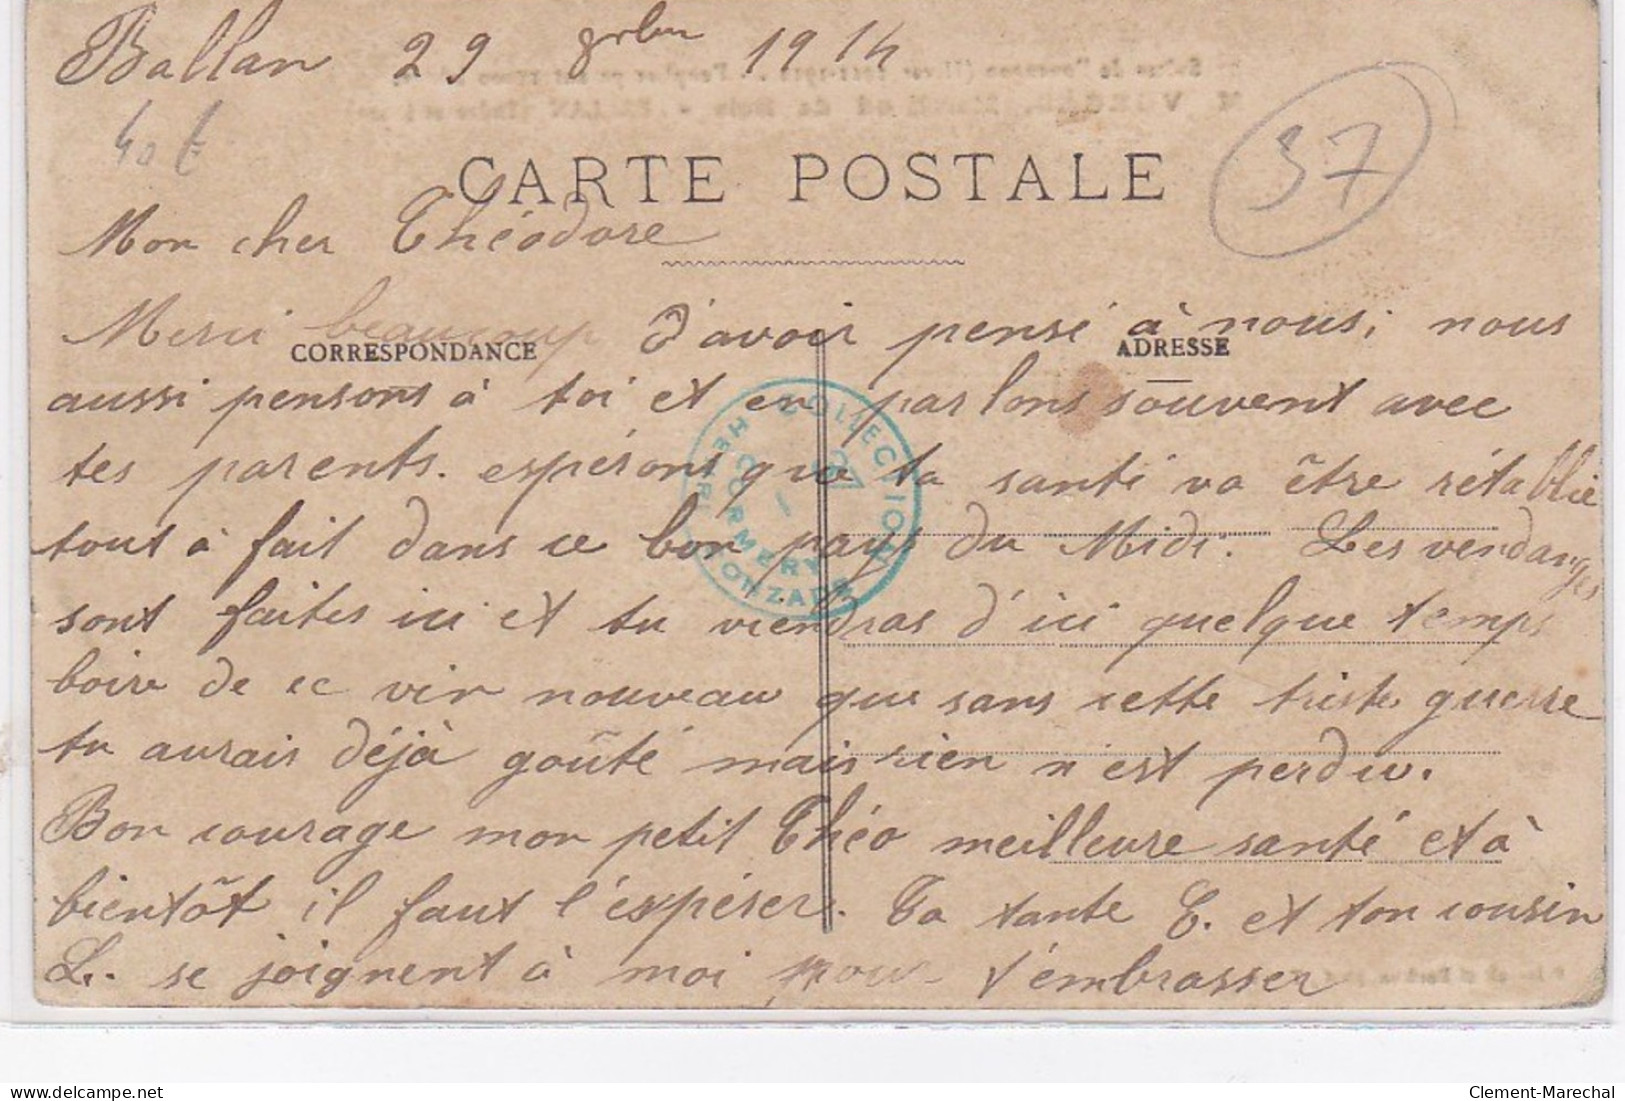 Ballan 29 9bre 1914
40 €
CARTE POSTALE
37
Mon cher Théodore
Merci beaucoup d'avoir pensé à nous; nous
CORRESPONDANCE
ADRESSE
aussi pensons à toi et en parlons souvent avec
tes parents. espérons que ta santé va être rétablie
tout à fait dans ce bon pays du Midi. Les vendanges
sont faites ici et tu viendras d'ici quelque temps
boire de ce vin nouveau que sans cette triste guerre
tu aurais déjà goûté mais rien n'est perdu.
Bon courage mon petit Théo meilleure santé et à
bientôt il faut l'espérer. Ta tante C. et ton cousin
L. se joignent à moi pour t'embrasser
COLLECTION
HENRI
CORMERY
MONZADE
www.delcampe.net
Clement-Marechal